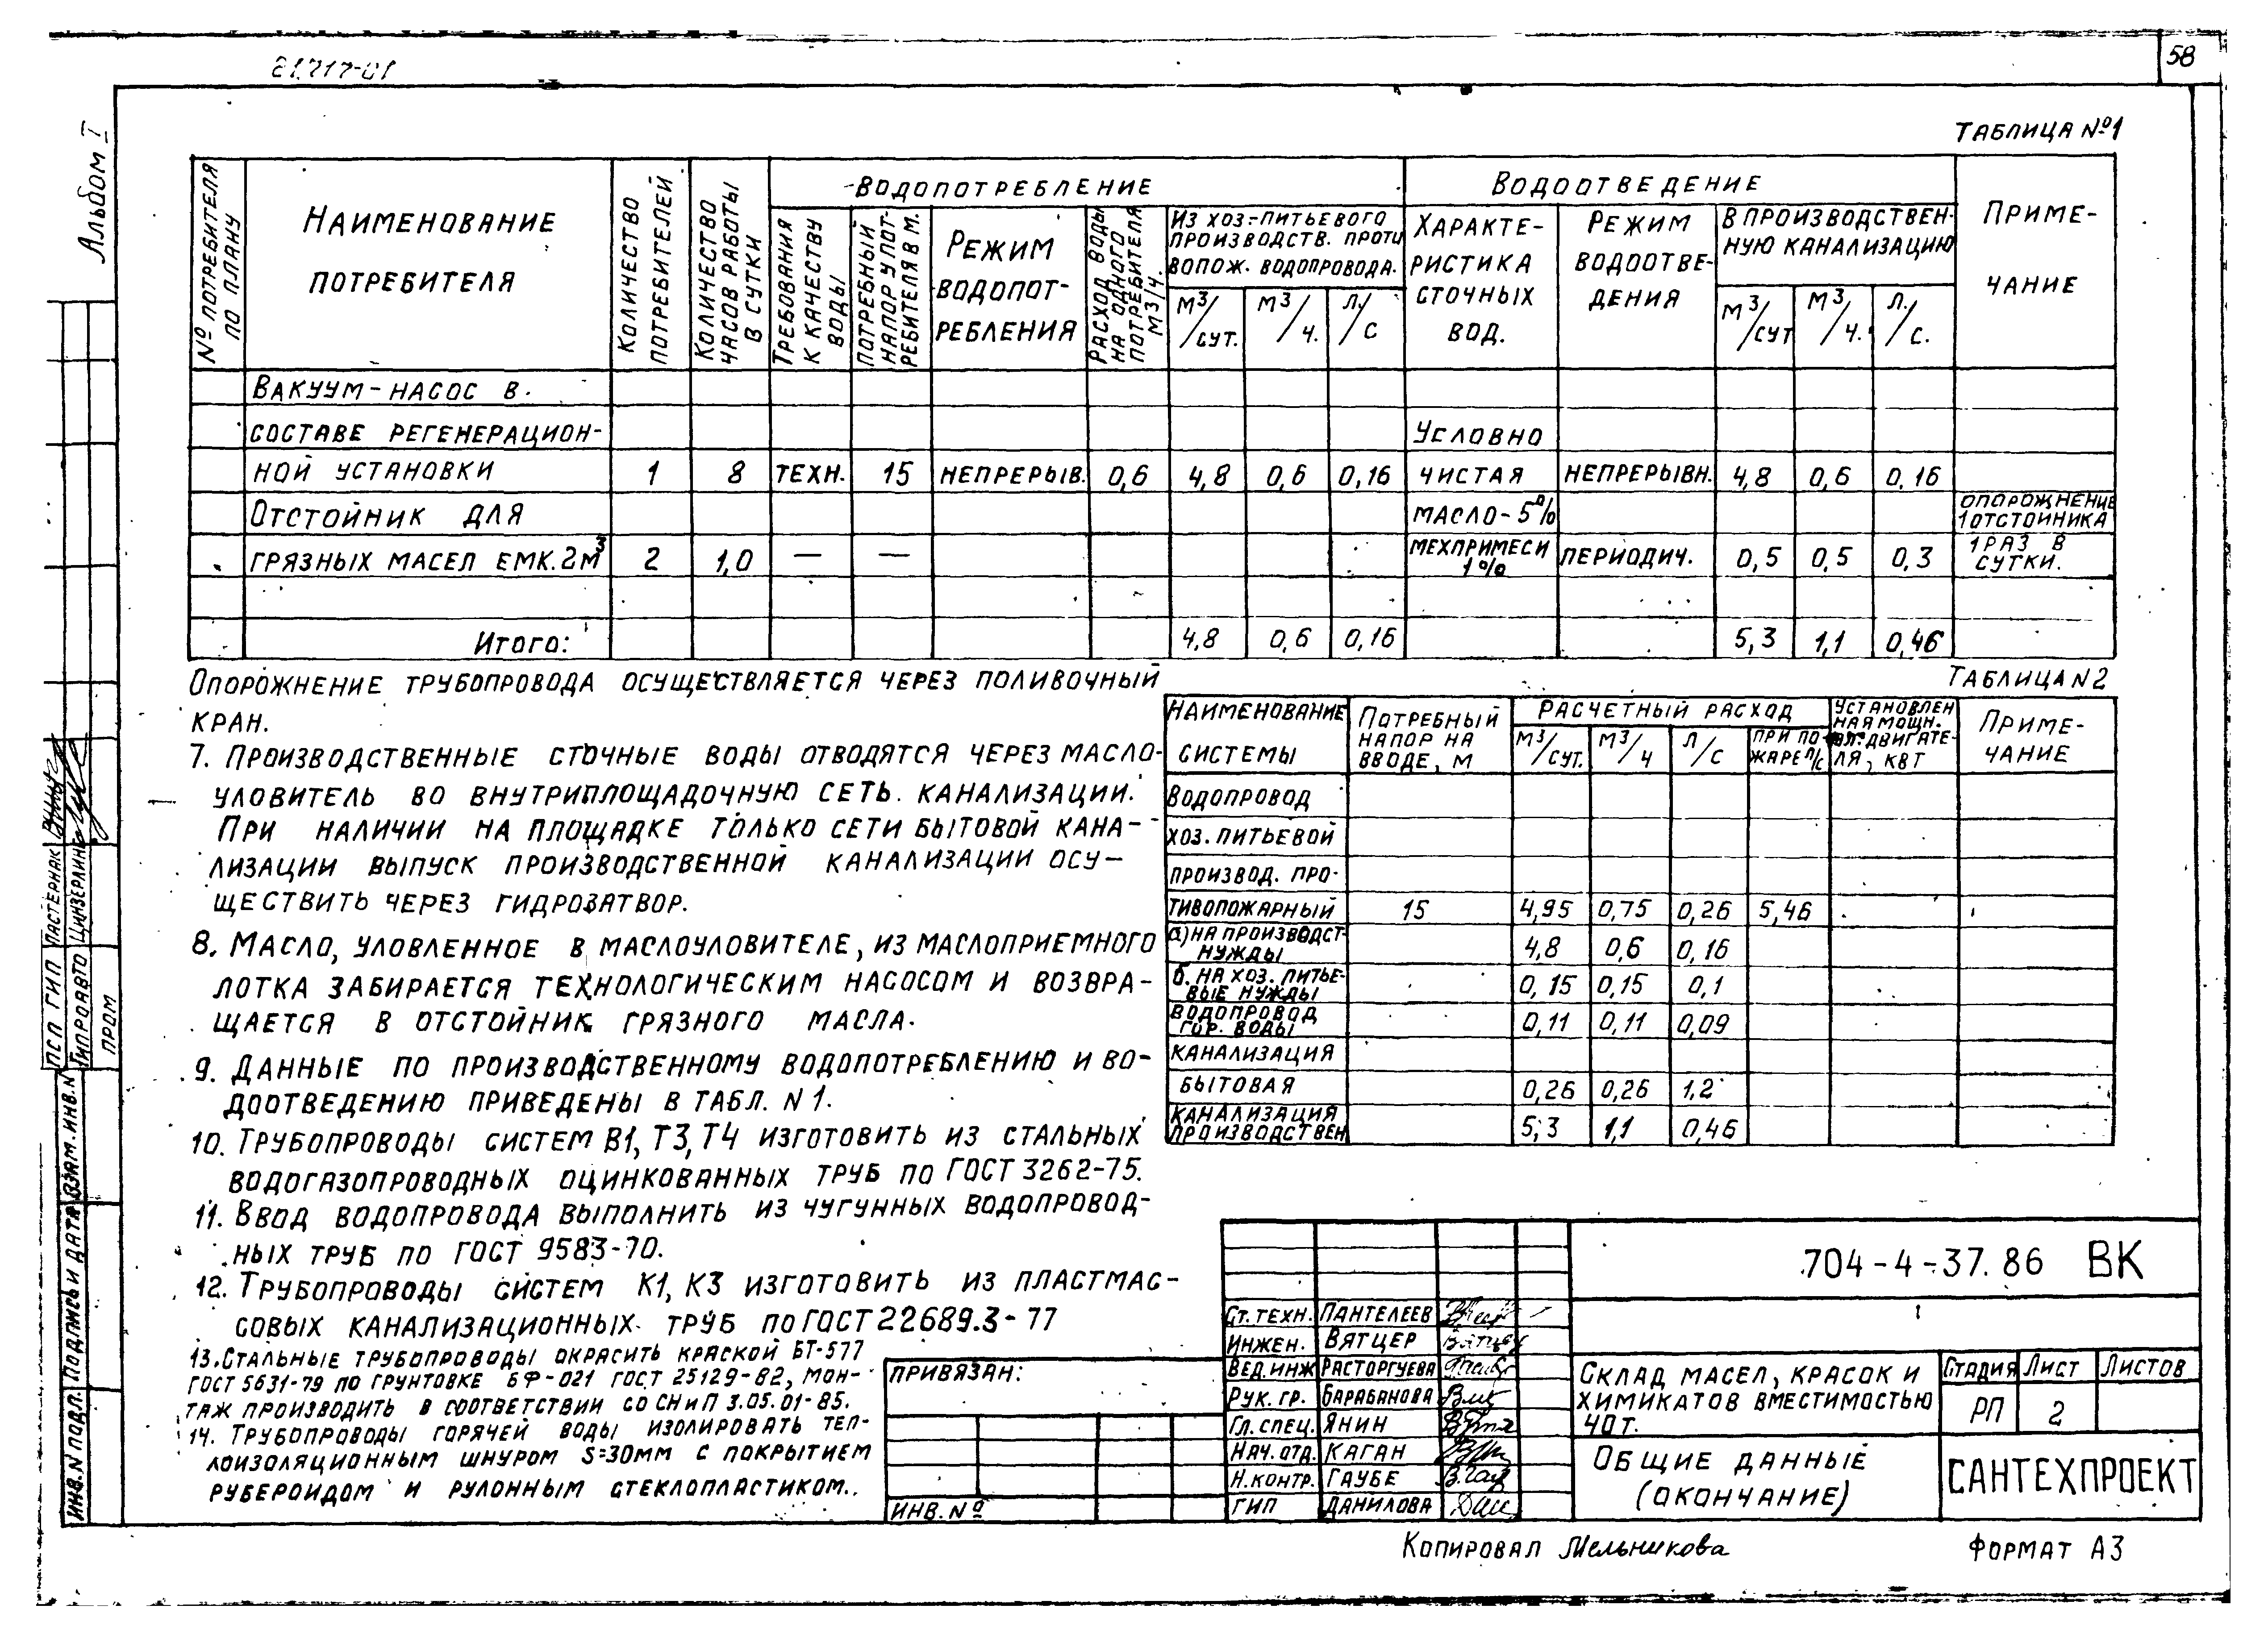 21717-01
58
Альбом I
ТАБЛИЦА №1
№ ПОТРЕБИТЕЛЯ ПО ПЛАНУ
НАИМЕНОВАНИЕ ПОТРЕБИТЕЛЯ
КОЛИЧЕСТВО ПОТРЕБИТЕЛЕЙ
КОЛИЧЕСТВО ЧАСОВ РАБОТЫ В СУТКИ
ВОДОПОТРЕБЛЕНИЕ
ТРЕБОВАНИЯ К КАЧЕСТВУ ВОДЫ
ПОТРЕБНЫЙ НАПОР У ПОТ-РЕБИТЕЛЯ В М.
РЕЖИМ ВОДОПОТ-РЕБЛЕНИЯ
РАСХОД ВОДЫ НА ОДНОГО ПОТРЕБИТЕЛЯ М3/Ч.
ИЗ ХОЗ.-ПИТЬЕВОГО ПРОИЗВОДСТВ. ПРОТИ ВОПОЖ. ВОДОПРОВОДА.
М3/СУТ. М3/Ч. Л/С
ВОДООТВЕДЕНИЕ
ХАРАКТЕ-РИСТИКА СТОЧНЫХ ВОД.
РЕЖИМ ВОДООТВЕ-ДЕНИЯ
В ПРОИЗВОДСТВЕН-НУЮ КАНАЛИЗАЦИЮ
М3/СУТ М3/Ч. Л./С.
ПРИМЕ-ЧАНИЕ
ВАКУУМ-НАСОС В
СОСТАВЕ РЕГЕНЕРАЦИОН- УСЛОВНО
НОЙ УСТАНОВКИ 1 8 ТЕХН. 15 НЕПРЕРЫВ. 0,6 4,8 0,6 0,16 ЧИСТАЯ НЕПРЕРЫВН. 4,8 0,6 0,16
ОТСТОЙНИК ДЛЯ МАСЛО-5% ОПОРОЖНЕНИЕ 1 ОТСТОЙНИКА
ГРЯЗНЫХ МАСЕЛ ЕМК. 2М3 2 1,0 — — МЕХПРИМЕСИ 1% ПЕРИОДИЧ. 0,5 0,5 0,3 1 РАЗ В СУТКИ.
ИТОГО: 4,8 0,6 0,16 5,3 1,1 0,46
ОПОРОЖНЕНИЕ ТРУБОПРОВОДА ОСУЩЕСТВЛЯЕТСЯ ЧЕРЕЗ ПОЛИВОЧНЫЙ
КРАН.
7. ПРОИЗВОДСТВЕННЫЕ СТОЧНЫЕ ВОДЫ ОТВОДЯТСЯ ЧЕРЕЗ МАСЛО-
УЛОВИТЕЛЬ ВО ВНУТРИПЛОЩАДОЧНУЮ СЕТЬ КАНАЛИЗАЦИИ.
ПРИ НАЛИЧИИ НА ПЛОЩАДКЕ ТОЛЬКО СЕТИ БЫТОВОЙ КАНА-
ЛИЗАЦИИ ВЫПУСК ПРОИЗВОДСТВЕННОЙ КАНАЛИЗАЦИИ ОСУ-
ЩЕСТВИТЬ ЧЕРЕЗ ГИДРОЗАТВОР.
8. МАСЛО, УЛОВЛЕННОЕ В МАСЛОУЛОВИТЕЛЕ, ИЗ МАСЛОПРИЕМНОГО
ЛОТКА ЗАБИРАЕТСЯ ТЕХНОЛОГИЧЕСКИМ НАСОСОМ И ВОЗВРА-
ЩАЕТСЯ В ОТСТОЙНИК ГРЯЗНОГО МАСЛА.
9. ДАННЫЕ ПО ПРОИЗВОДСТВЕННОМУ ВОДОПОТРЕБЛЕНИЮ И ВО-
ДООТВЕДЕНИЮ ПРИВЕДЕНЫ В ТАБЛ. N 1.
10. ТРУБОПРОВОДЫ СИСТЕМ В1, Т3, Т4 ИЗГОТОВИТЬ ИЗ СТАЛЬНЫХ
ВОДОГАЗОПРОВОДНЫХ ОЦИНКОВАННЫХ ТРУБ ПО ГОСТ 3262-75.
11. ВВОД ВОДОПРОВОДА ВЫПОЛНИТЬ ИЗ ЧУГУННЫХ ВОДОПРОВОД-
НЫХ ТРУБ ПО ГОСТ 9583-70.
12. ТРУБОПРОВОДЫ СИСТЕМ К1, К3 ИЗГОТОВИТЬ ИЗ ПЛАСТМАС-
СОВЫХ КАНАЛИЗАЦИОННЫХ ТРУБ ПО ГОСТ 22689.3-77
13. СТАЛЬНЫЕ ТРУБОПРОВОДЫ ОКРАСИТЬ КРАСКОЙ БТ-577
ГОСТ 5631-79 ПО ГРУНТОВКЕ БФ-021 ГОСТ 25129-82, МОН-
ТАЖ ПРОИЗВОДИТЬ В СООТВЕТСТВИИ СО СНиП 3.05.01-85.
14. ТРУБОПРОВОДЫ ГОРЯЧЕЙ ВОДЫ ИЗОЛИРОВАТЬ ТЕП-
ЛОИЗОЛЯЦИОННЫМ ШНУРОМ S=30ММ С ПОКРЫТИЕМ
РУБЕРОИДОМ И РУЛОННЫМ СТЕКЛОПЛАСТИКОМ.
ТАБЛИЦА N 2
НАИМЕНОВАНИЕ СИСТЕМЫ
ПОТРЕБНЫЙ НАПОР НА ВВОДЕ, М
РАСЧЕТНЫЙ РАСХОД
М3/СУТ. М3/Ч Л/С ПРИ ПО-ЖАРЕ Л/С
УСТАНОВЛЕН НАЯ МОЩН. ЭЛ. ДВИГАТЕ-ЛЯ, КВТ
ПРИМЕ-ЧАНИЕ
ВОДОПРОВОД
ХОЗ. ПИТЬЕВОЙ
ПРОИЗВОД. ПРО-
ТИВОПОЖАРНЫЙ 15 4,95 0,75 0,26 5,46
а) НА ПРОИЗВОДСТ НУЖДЫ 4,8 0,6 0,16
б. НА ХОЗ. ПИТЬЕ-ВЫЕ НУЖДЫ 0,15 0,15 0,1
ВОДОПРОВОД ГОР. ВОДЫ 0,11 0,11 0,09
КАНАЛИЗАЦИЯ
БЫТОВАЯ 0,26 0,26 1,2
КАНАЛИЗАЦИЯ ПРОИЗВОДСТВЕН 5,3 1,1 0,46
704-4-37.86 ВК
СТ. ТЕХН. ПАНТЕЛЕЕВ
ИНЖЕН. ВЯТЦЕР
ВЕД. ИНЖ РАСТОРГУЕВА
РУК. ГР. БАРАБАНОВА
ГЛ. СПЕЦ. ЯНИН
НАЧ. ОТД. КАГАН
Н. КОНТР. ГАУБЕ
ГИП ДАНИЛОВА
СКЛАД МАСЕЛ, КРАСОК И
ХИМИКАТОВ ВМЕСТИМОСТЬЮ
40 Т.
СТАДИЯ ЛИСТ ЛИСТОВ
РП 2
ОБЩИЕ ДАННЫЕ
(ОКОНЧАНИЕ)
САНТЕХПРОЕКТ
ПРИВЯЗАН:
ИНВ. №
ПСП ГИП ПАСТЕРНАК
ГИПРОАВТО ПРОМ
ИНВ. N ПОДЛ. ПОДПИСЬ И ДАТА ВЗАМ. ИНВ. N
Копировал Мельникова
ФОРМАТ А3